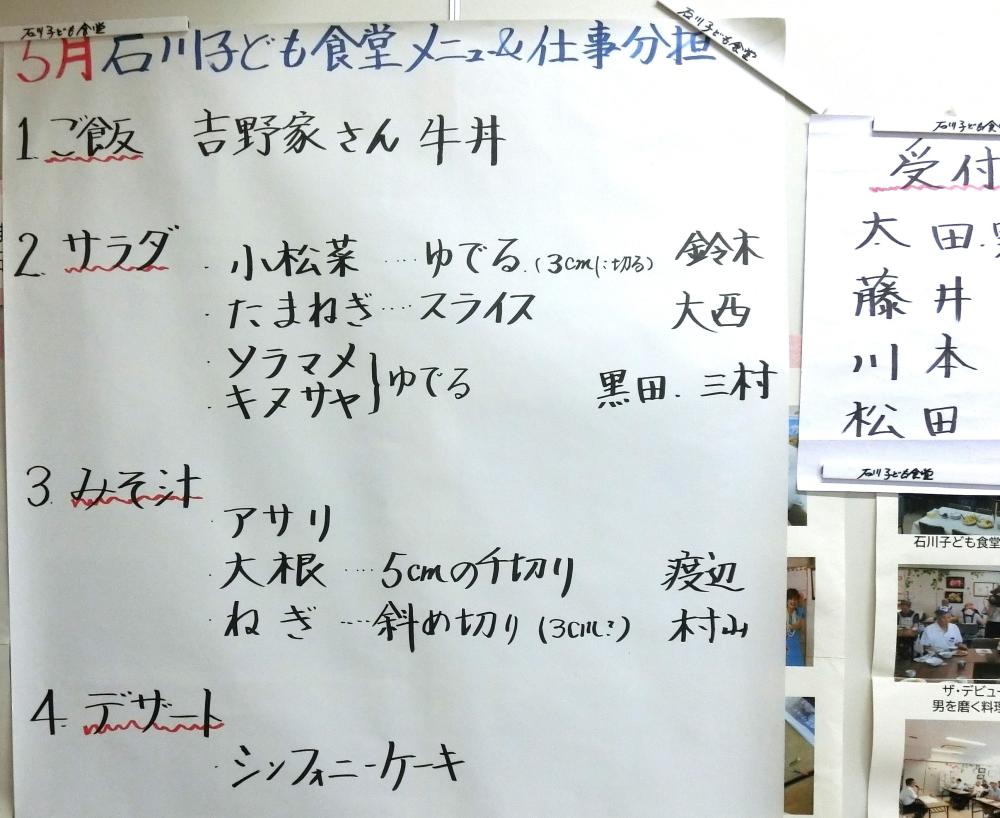 石川子ども食堂
石川子ども食堂
5月 石川子ども食堂メニュー&仕事分担
1 ご飯 吉野家さん 牛丼
2. サラダ
・小松菜 ‥‥ ゆでる.(3cmに切る) 鈴木
・たまねぎ ‥‥ スライス 大西
・ソラマメ
・キヌサヤ }ゆでる 黒田. 三村
3. みそ汁
・アサリ
・大根 ‥‥ 5cmの千切り 渡辺
・ねぎ ‥‥ 斜め切り (3cmに) 村山
4. デザート
・シンフォニーケーキ
石川子ども食
受付
太田.
藤井
川本
松田
石川子ども食堂
石川子ども食堂
ザ・デビュー
男を磨く料理